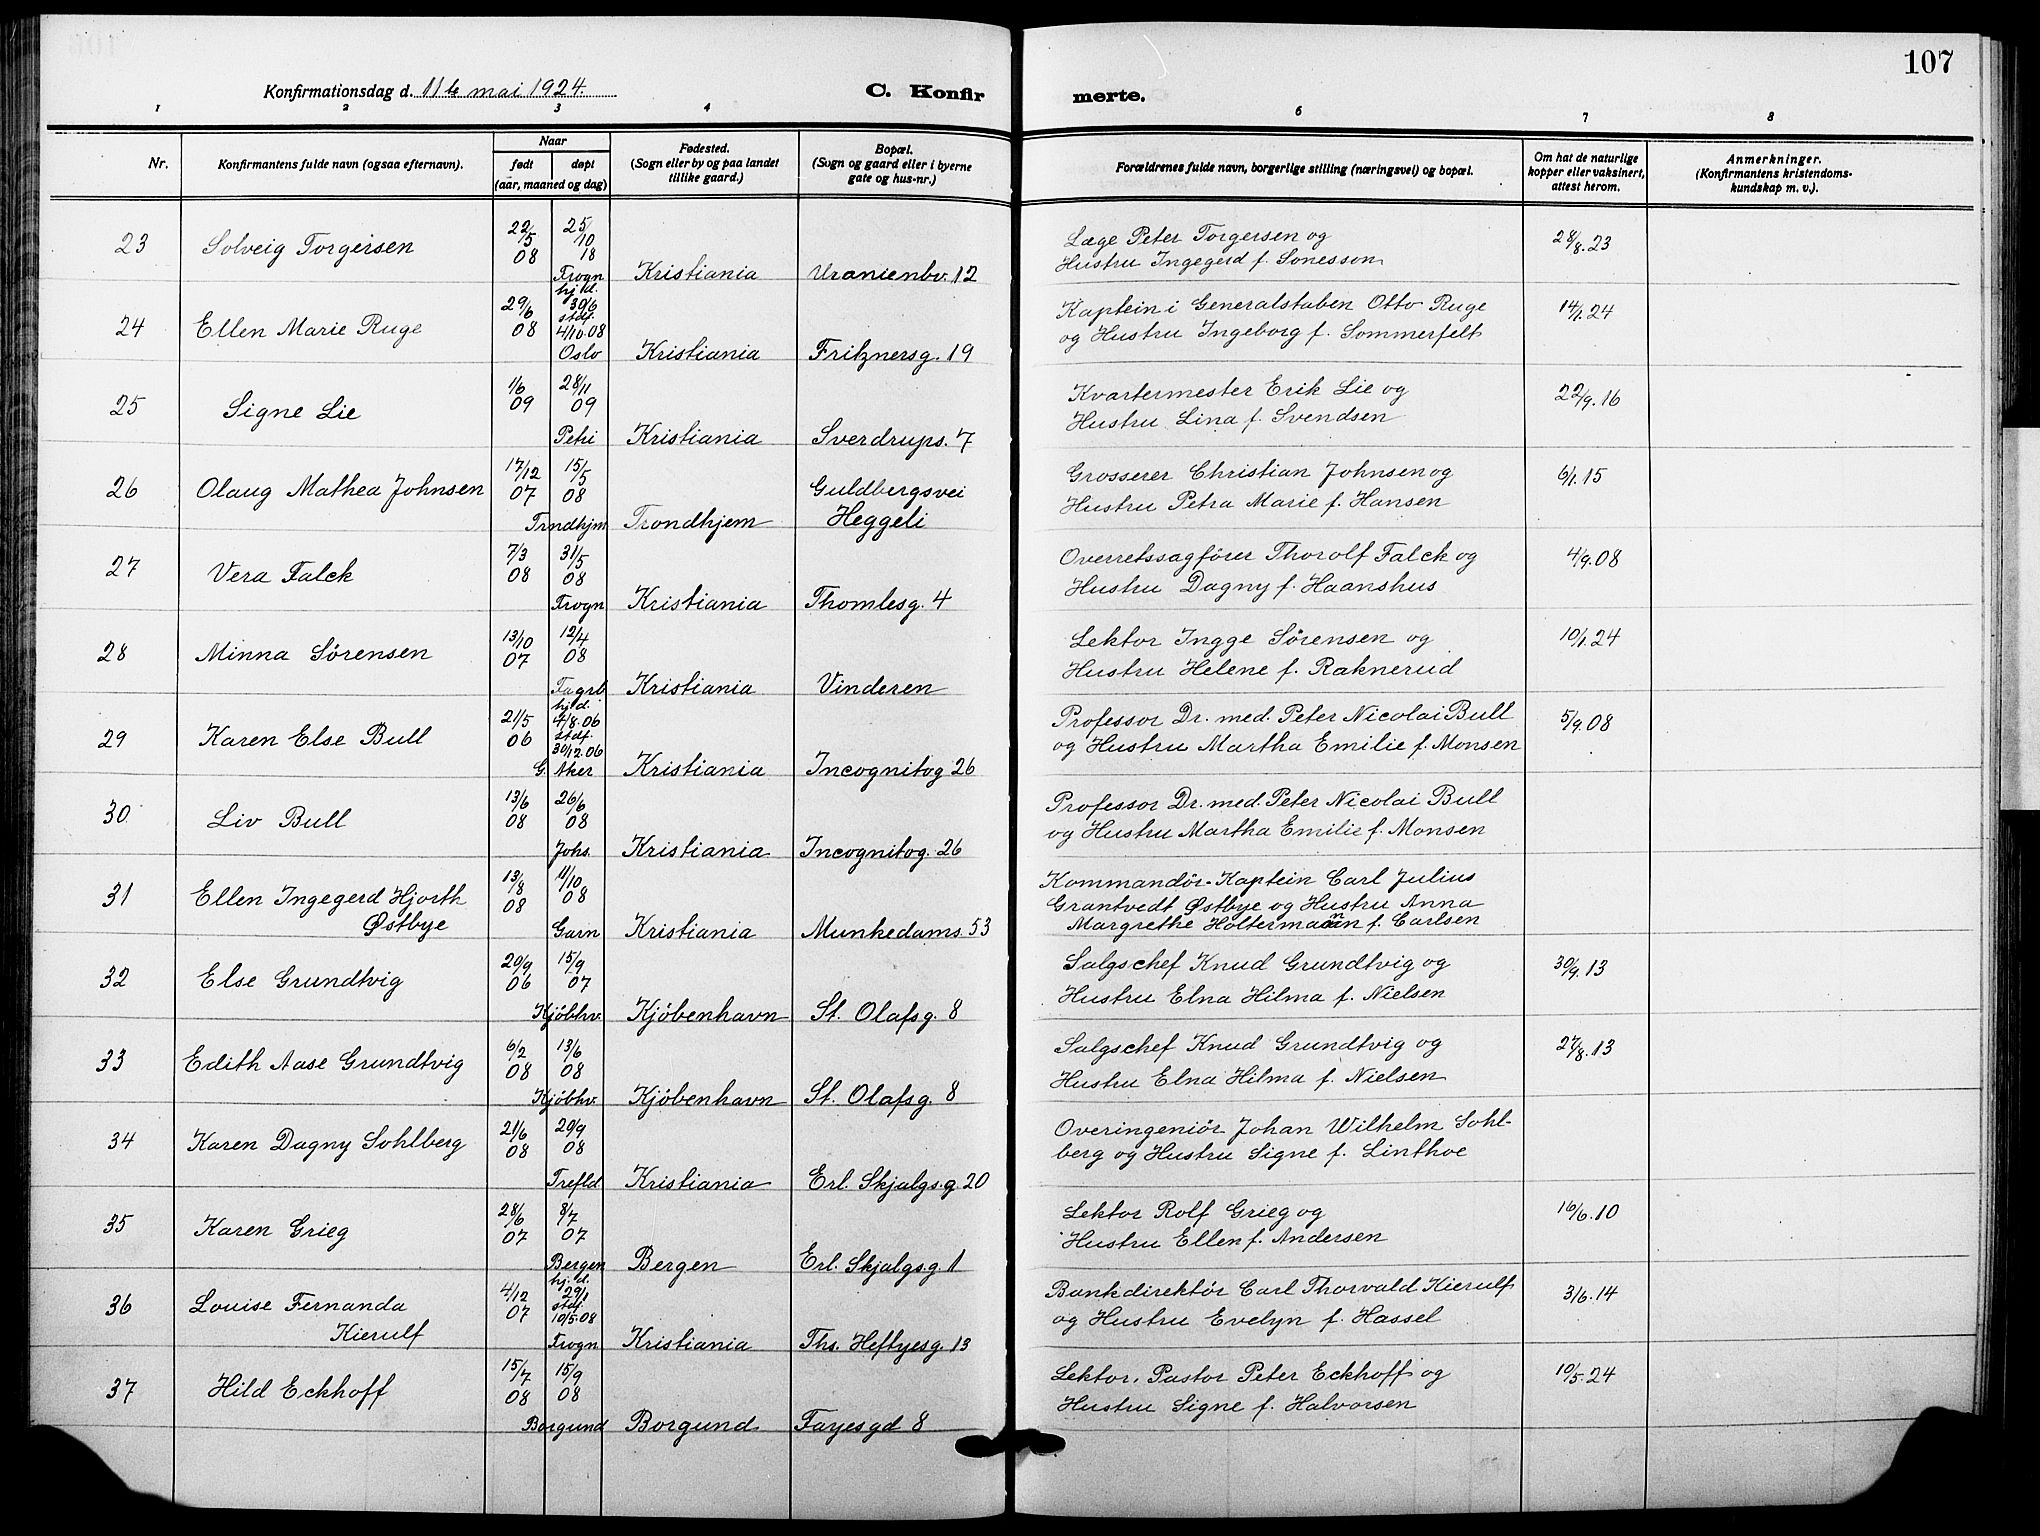 107
Konfirmationsdag d. 11te mai 1924.
C. Konfir
merte.
1 2 3 4 6 7 8
Nr.
Konfirmantens fulde navn (ogsaa efternavn).
Naar
født døpt
(aar, maaned og dag)
Fødested.
(Sogn eller by og paa landet
tillike gaard.)
Bopæl.
(Sogn og gaard eller i byerne
gate og hus-nr.)
Forældrenes fulde navn, borgerlige stilling (næringsvei) og bopæl.
Om hat de naturlige
kopper eller vaksinert,
attest herom.
Anmerkninger.
(Konfirmantens kristendoms-
kundskap m. v.).
23 Solveig Torgersen 22/5 08 25/10 18 Læge Peter Torgersen og 28/8.23
Frogn Kristiania Uranienbv. 12 Hustru Ingegerd f. Sonesson
24 Ellen Marie Ruge 29/6 08 hj d. 30/6 stdf. 4/10.08 Kaptein i Generalstaben Otto Ruge 14/1.24
Oslo Kristiania Fritznersg. 19 og Hustru Ingeborg f. Sommerfelt
25 Signe Lie 1/6 09 28/11 09 Kvartermester Erik Lie og 22/9.16
Petri Kristiania Sverdrups. 7 Hustru Lina f. Svendsen
26 Olaug Mathea Johnsen 17/12 07 15/5 08 Guldbergsvei Grosserer Christian Johnsen og 6/1.15
Trndhjm Trondhjem Heggeli Hustru Petra Marie f. Hansen
27 Vera Falck 7/3 08 31/5 08 Overretssagfører Thorolf Falck og 4/9.08
Frogn Kristiania Thomlesg. 4 Hustru Dagny f. Haanshus
28 Minna Sörensen 13/10 07 12/4 08 Lektor Ingge Sörensen og 10/1.24
Fagrb Kristiania Vinderen Hustru Helene f. Raknerud
29 Karen Else Bull 21/5 06 hjd. 4/8.06 stdf. 30/12.06 Professor Dr. med. Peter Nicolai Bull 5/9.08
G. Aker Kristiania Incognitog 26 og Hustru Martha Emilie f. Monsen
30 Liv Bull 13/6 08 26/6 08 Professor Dr. med. Peter Nicolai Bull
Johs. Kristiania Incognitog. 26 og Hustru Martha Emilie f. Monsen
31 Ellen Ingegerd Hjorth 13/8 08 11/10 08 Kommandör-Kaptein Carl Julius
Østbye Grantvedt Østbye og Hustru Anna
Garn Kristiania Munkedams. 53 Margrethe Holtermann f. Carlsen
32 Else Grundtvig 29/9 06 15/9 07 Salgschef Knud Grundtvig og 30/9.13
Kjöbhv. Kjöbenhavn St. Olafsg. 8 Hustru Elna Hilma f. Nielsen
33 Edith Aase Grundtvig 6/2 08 13/6 08 Salgschef Knud Grundtvig og 27/8.13
Kjöbhv. Kjöbenhavn St. Olafsg. 8 Hustru Elna Hilma f. Nielsen
34 Karen Dagny Sohlberg 21/6 08 29/9 08 Overingeniör Johan Wilhelm Sohl-
Trefld Kristiania Erl. Skjalgs.g. 20 berg og Hustru Signe f. Linthoe
35 Karen Grieg 28/6 07 8/7 07 Lektor Rolf Grieg og 16/6.10
Bergen Bergen Erl. Skjalgsg. 1 Hustru Ellen f. Andersen
36 Louise Fernanda 4/12 07 hj. d. 29/1 stdf. 10/5.08 Bankdirektör Carl Thorvald Kierulf 3/6.14
Kierulf Frogn Kristiania Ths. Heftyesg. 13 og Hustru Evelyn f. Hassel
37 Hild Eckhoff 15/7 08 15/9 08 Lektor, Pastor Peter Eckhoff og 10/5.24
Borgund Borgund Fayesgd 8 Hustru Signe f. Halvorsen